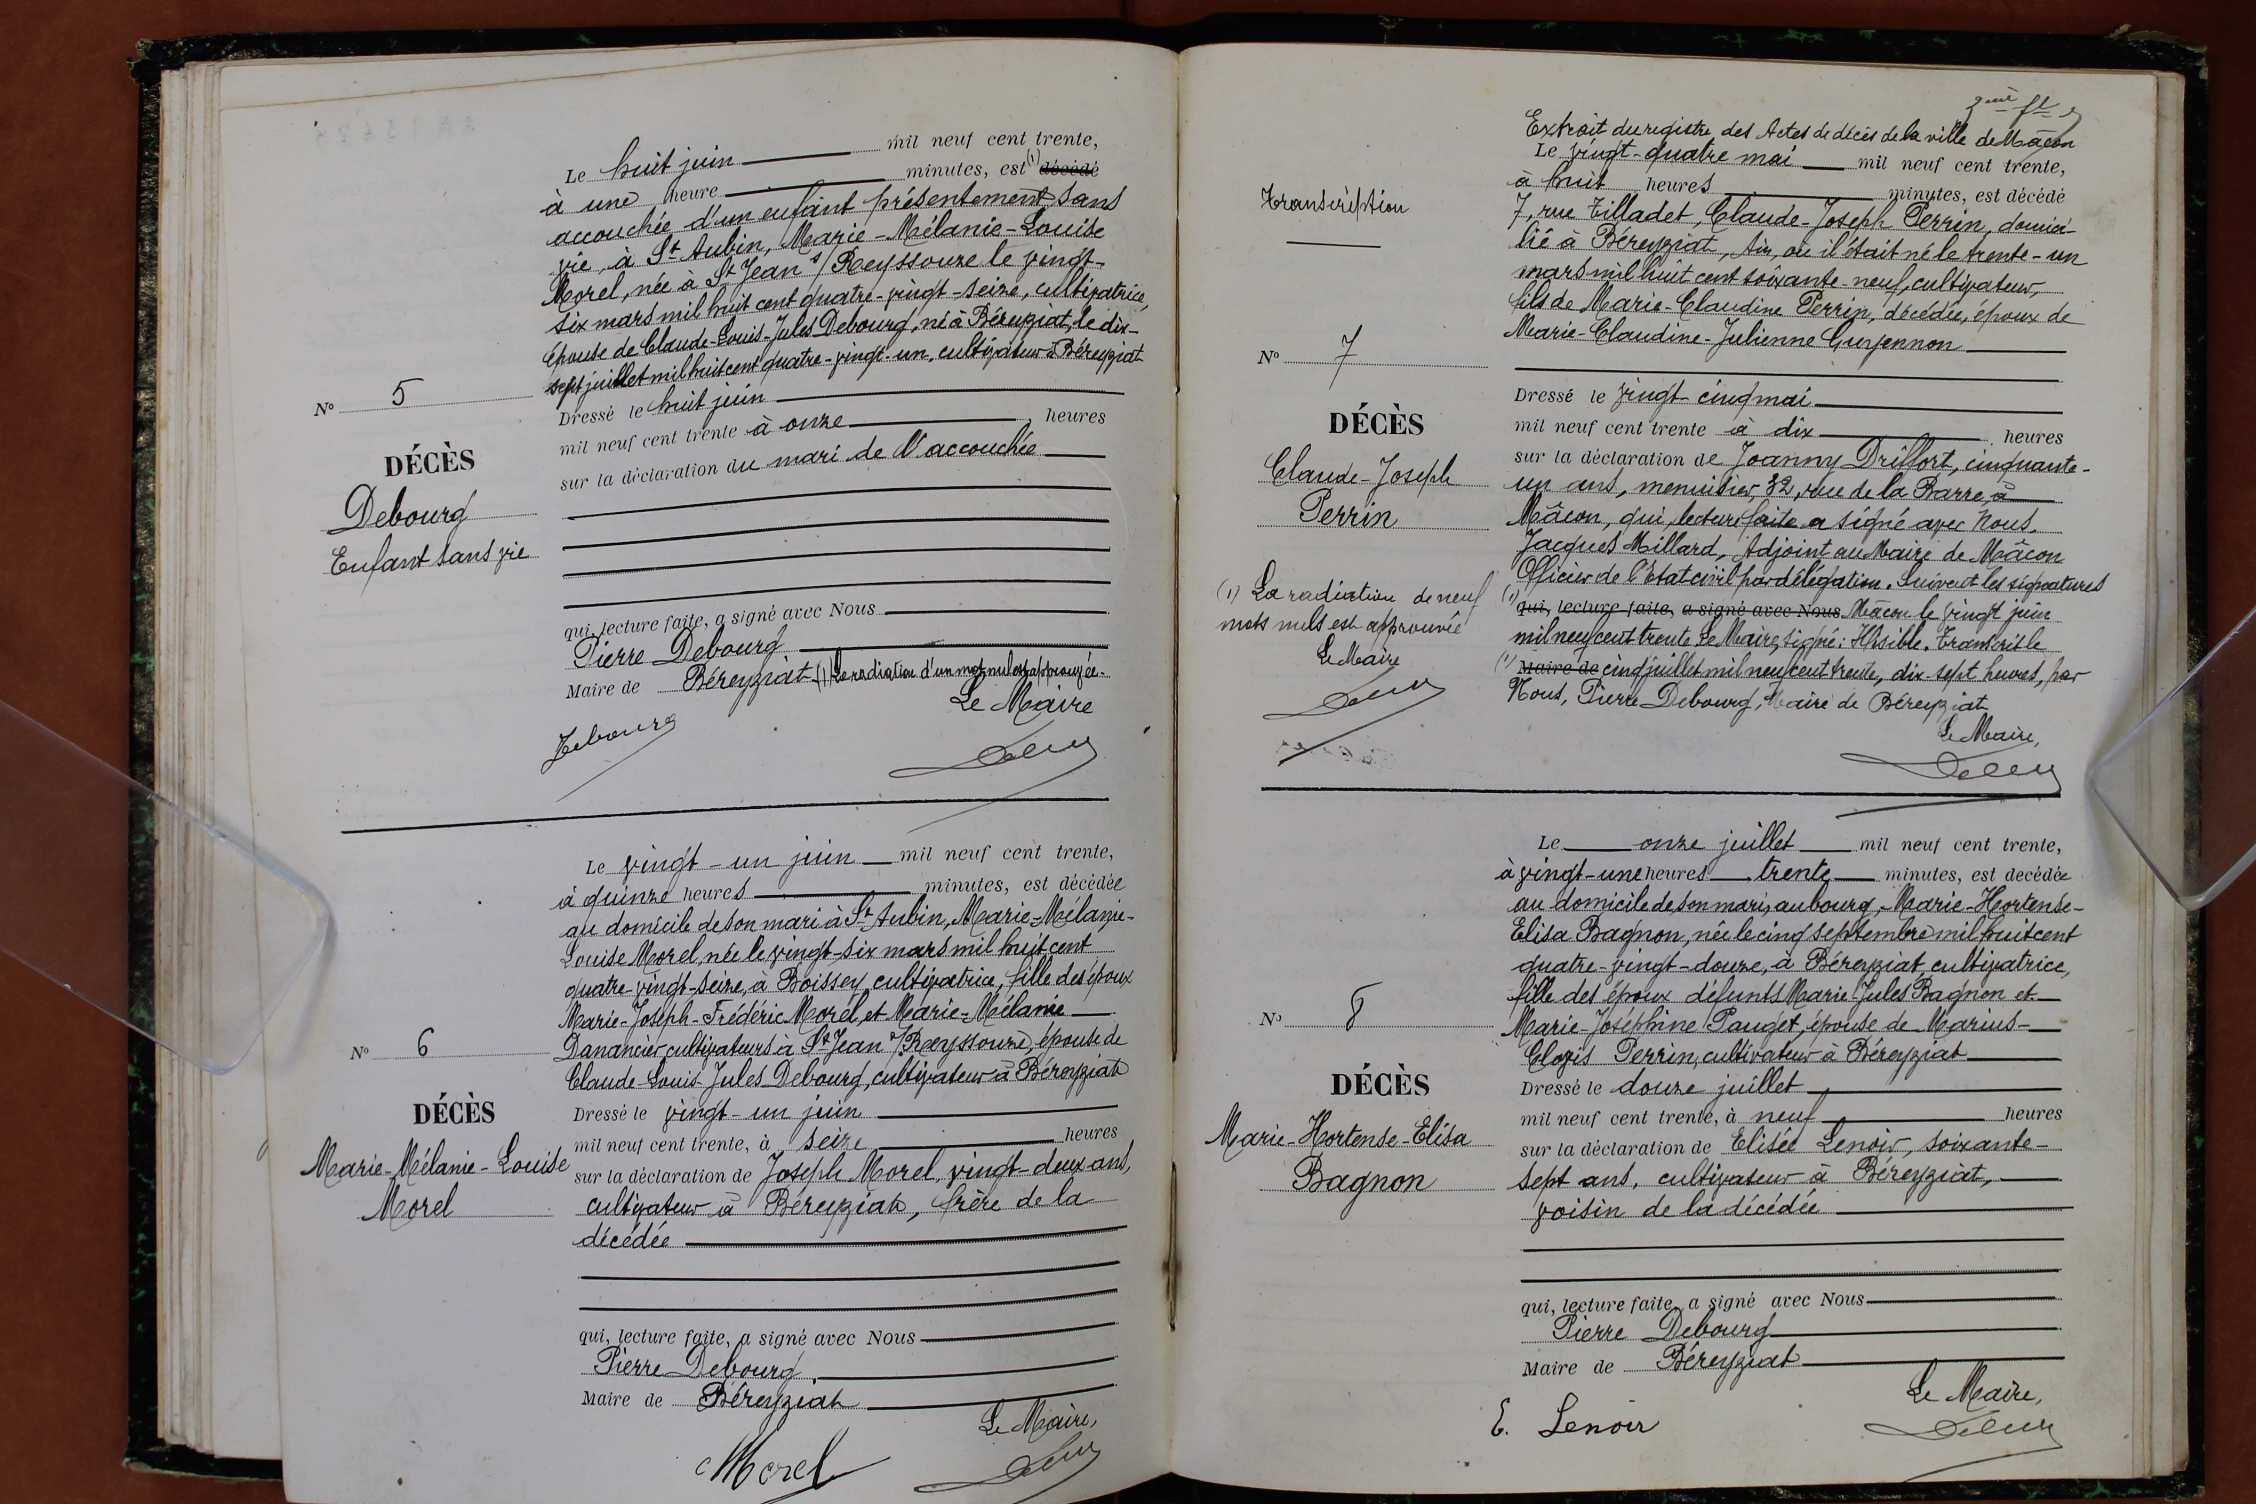 Le huit juin mil neuf cent trente,
à une heure minutes, est (1) décédé
accouchée d'un enfant présentement sans
vie, à St Aubin, Marie-Mélanie-Louise
Morel, née à St Jean s/ Reyssouze le vingt-
six mars mil huit cent quatre-vingt-seize, cultivatrice,
épouse de Claude-Louis-Jules Debourg, né à Béreyziat, le dix-
sept juillet mil huit cent quatre-vingt-un, cultivateur à Béreyziat
Dressé le huit juin
mil neuf cent trente à onze heures
sur la déclaration du mari de l'accouchée
qui, lecture faite, a signé avec Nous
Pierre Debourg
Maire de Béreyziat (1) La radiation d'un mot nul est approuvée.
Le Maire
Debourg
N° 5
DÉCÈS
Debourg
Enfant sans vie
Le vingt-un juin mil neuf cent trente,
à quinze heures minutes, est décédée
au domicile de son mari à St Aubin, Marie-Mélanie-
Louise Morel, née le vingt-six mars mil huit cent
quatre-vingt-seize, à Boissey, cultivatrice, fille des époux
Marie-Joseph-Frédéric Morel, et Marie-Mélanie
Danancier cultivateurs à St Jean s/ Reyssouze, épouse de
Claude-Louis-Jules Debourg, cultivateur à Béreyziat
Dressé le vingt-un juin
mil neuf cent trente, à seize heures
sur la déclaration de Joseph Morel, vingt-deux ans,
cultivateur à Béreyziat, frère de la
décédée
qui, lecture faite, a signé avec Nous
Pierre Debourg,
Maire de Béreyziat
Le Maire,
Morel
N° 6
DÉCÈS
Marie-Mélanie-Louise
Morel
Extrait du registre des Actes de décès de la ville de Mâcon
Le vingt-quatre mai mil neuf cent trente,
à huit heures minutes, est décédé
7, rue Tilladet, Claude-Joseph Perrin, domici-
lié à Béreyziat, Ain, où il était né le trente-un
mars mil huit cent soixante-neuf, cultivateur,
fils de Marie-Claudine Perrin, décédée, époux de
Marie-Claudine-Julienne Guyennon
Dressé le vingt-cinq mai
mil neuf cent trente à dix heures
sur la déclaration de Joanny Drillort, cinquante-
un ans, menuisier, 32, rue de la Barre, à
Mâcon, qui, lecture faite a signé avec Nous,
Jacques Millard, Adjoint au Maire de Mâcon
Officier de l'Etat civil par délégation. Suivent les signatures
(1) qui, lecture faite, a signé avec Nous Mâcon le vingt juin
mil neuf cent trente Le Maire, signé : Illisible. Transcrit le
(1) Maire de cinq juillet mil neuf cent trente, dix-sept heures, par
Nous, Pierre Debourg, Maire de Béreyziat
Le Maire,
Transcription
N° 7
DÉCÈS
Claude-Joseph
Perrin
(1) La radiation de neuf
mots nuls est approuvée
Le Maire
Le onze juillet mil neuf cent trente,
à vingt-une heures trente minutes, est décédée
au domicile de son mari, au bourg, Marie-Hortense-
Elisa Bagnon, née le cinq septembre mil huit cent
quatre-vingt-douze, à Béreyziat, cultivatrice,
fille des époux défunts Marie Jules Bagnon et
Marie-Joséphine Pauget, épouse de Marius-
Clovis Perrin, cultivateur à Béreyziat
Dressé le douze juillet
mil neuf cent trente, à neuf heures
sur la déclaration de Elisée Lenoir, soixante-
sept ans, cultivateur à Béreyziat,
voisin de la décédée
qui, lecture faite, a signé avec Nous
Pierre Debourg
Maire de Béreyziat
Le Maire,
E. Lenoir
N° 8
DÉCÈS
Marie-Hortense-Elisa
Bagnon